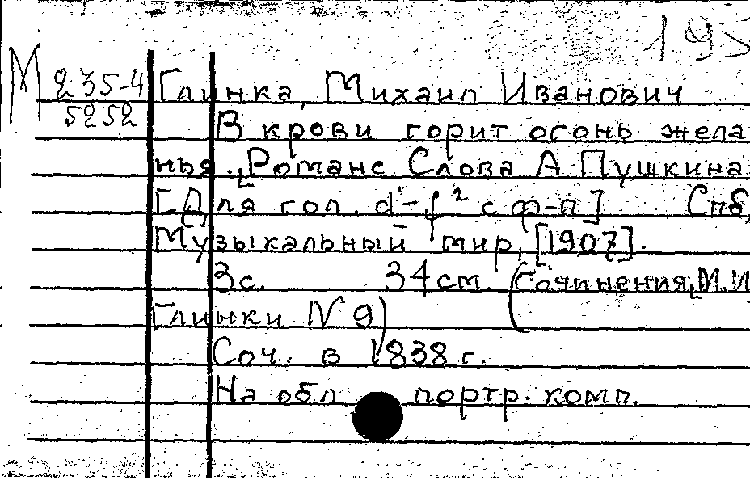 М 235-4
5252
Глинка, Михаил Иванович
В крови горит огонь жела
нья. Романс Слова А Пушкина
[Для гол. d¹-f² с ф-п] Спб,
Музыкальный мир, [1907].
3с. 34см (Сочинения М.И
Глинки N 9)
Соч. в 1838 г.
На обл портр. комп.